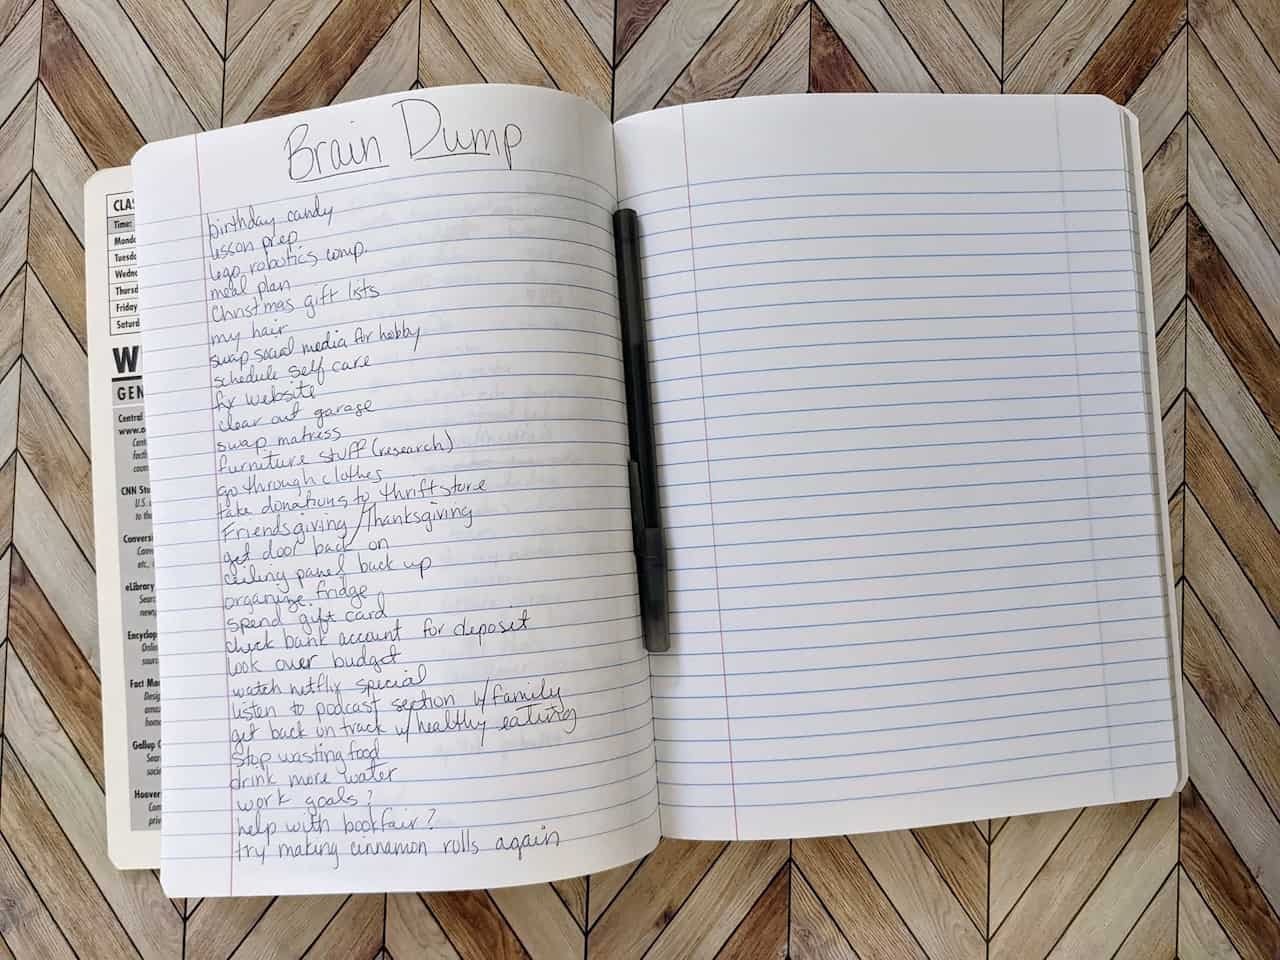 Brain Dump
birthday candy
lesson prep
lego robotics comp.
meal plan
Christmas gift lists
my hair
swap social media for hobby
schedule self care
fix website
clear out garage
swap matress
furniture stuff (research)
go through clothes
take donations to thriftstore
Friendsgiving/Thanksgiving
get door back on
ceiling panel back up
organize fridge
spend gift card
check bank account for deposit
look over budget
watch netflix special
listen to podcast section w/family
get back on track w/healthy eating
Stop wasting food
drink more water
work goals?
help with bookfair?
try making cinnamon rolls again
CLAS
Time:
Mond
Tuesd
Wedne
Thursd
Friday
Saturd
W
GEN
Central
www.o
Cent
facti
coun
CNN Stu
U.S.
to the
Convers
Conv
etc.,
eLibrary
Sear
news
Encyclop
Onlin
sour
Fact Mo
Desig
ama
hom
Gallup
Sear
socie
Hoover
Com
priv